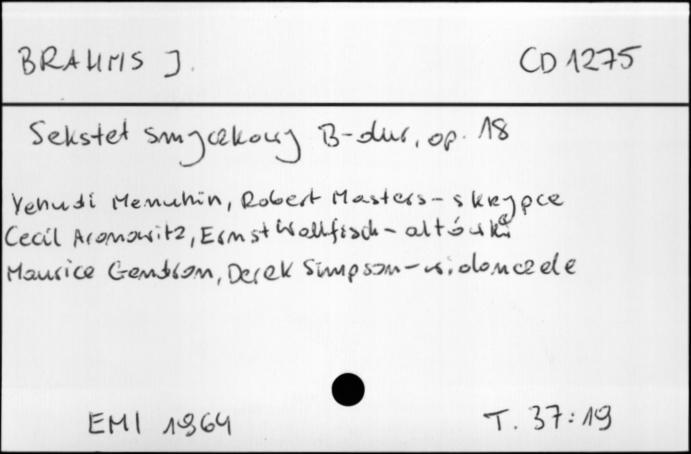 BRAHMS J.
CD 1275
Sekstet smyczkowy B-dur, op. 18
Yehudi Menuhin, Robert Masters - skrzypce
Cecil Aronowitz, Ernst Wallfisch - altówki
Maurice Gendron, Derek Simpson - wiolonczele
EMI 1964
T. 37:19